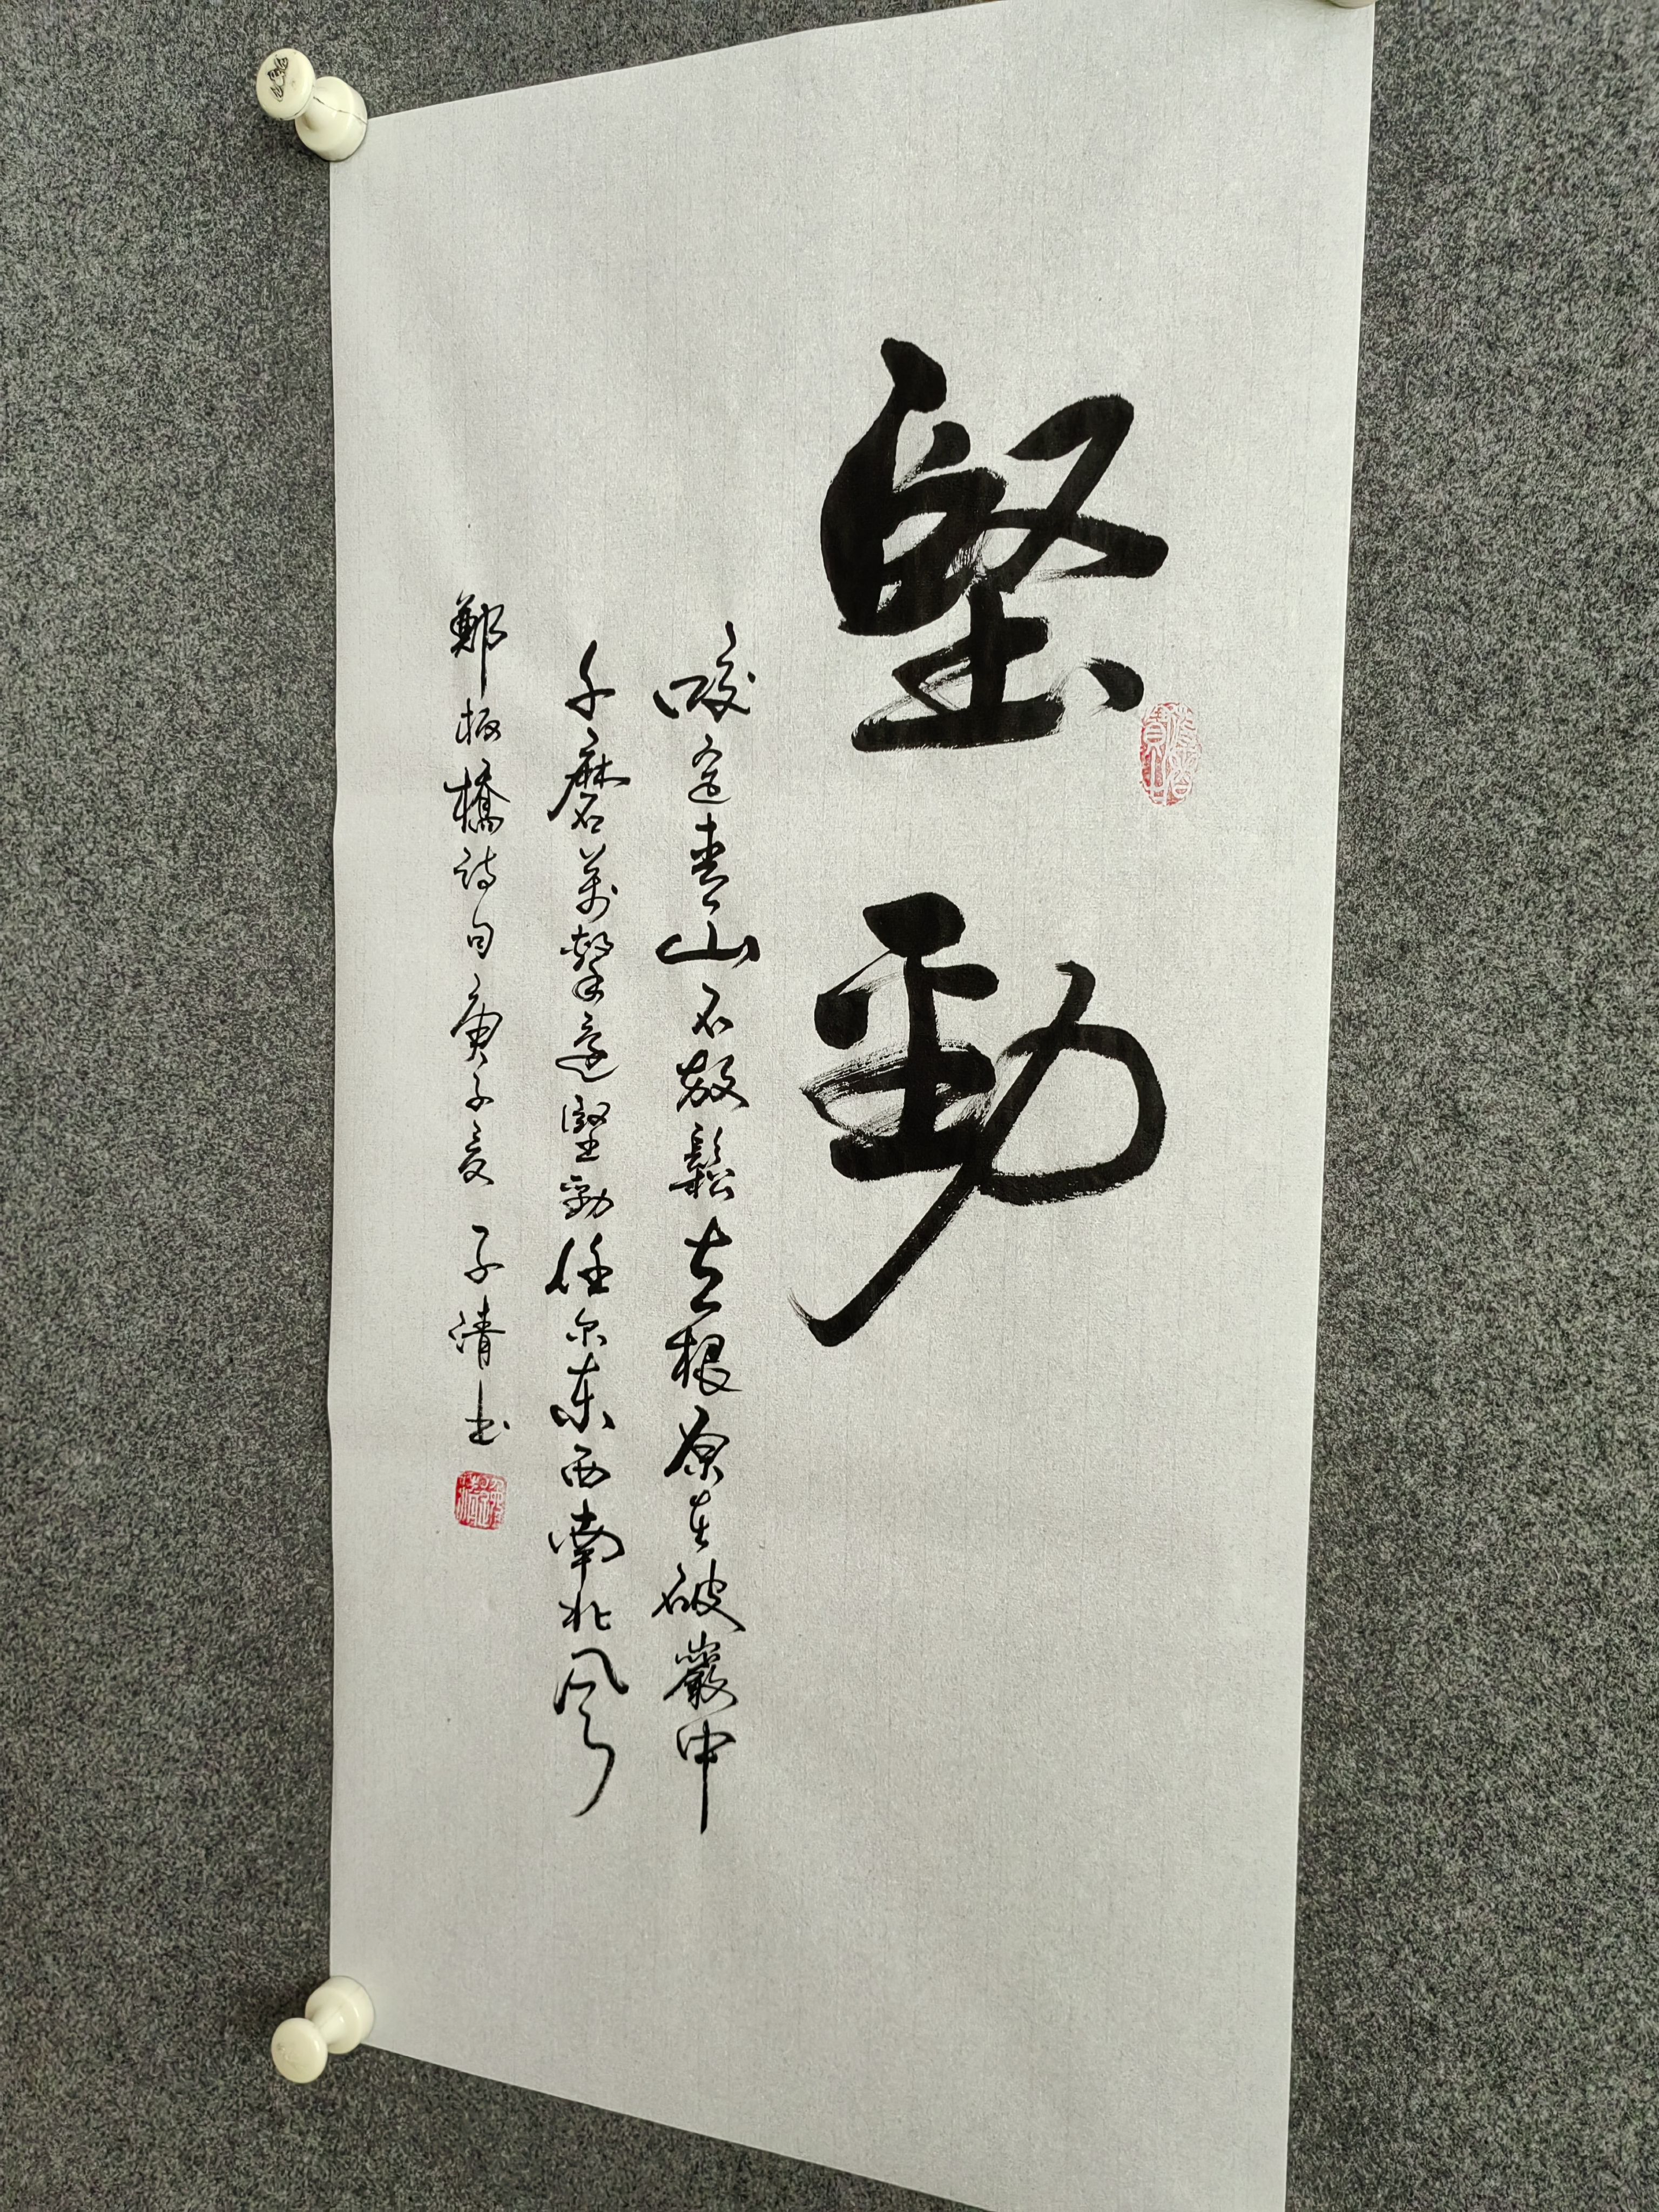 堅勁
咬定青山不放鬆立根原在破巖中
千磨萬擊還堅勁任尔东西南北风
鄭板橋詩句庚子夏 子清书